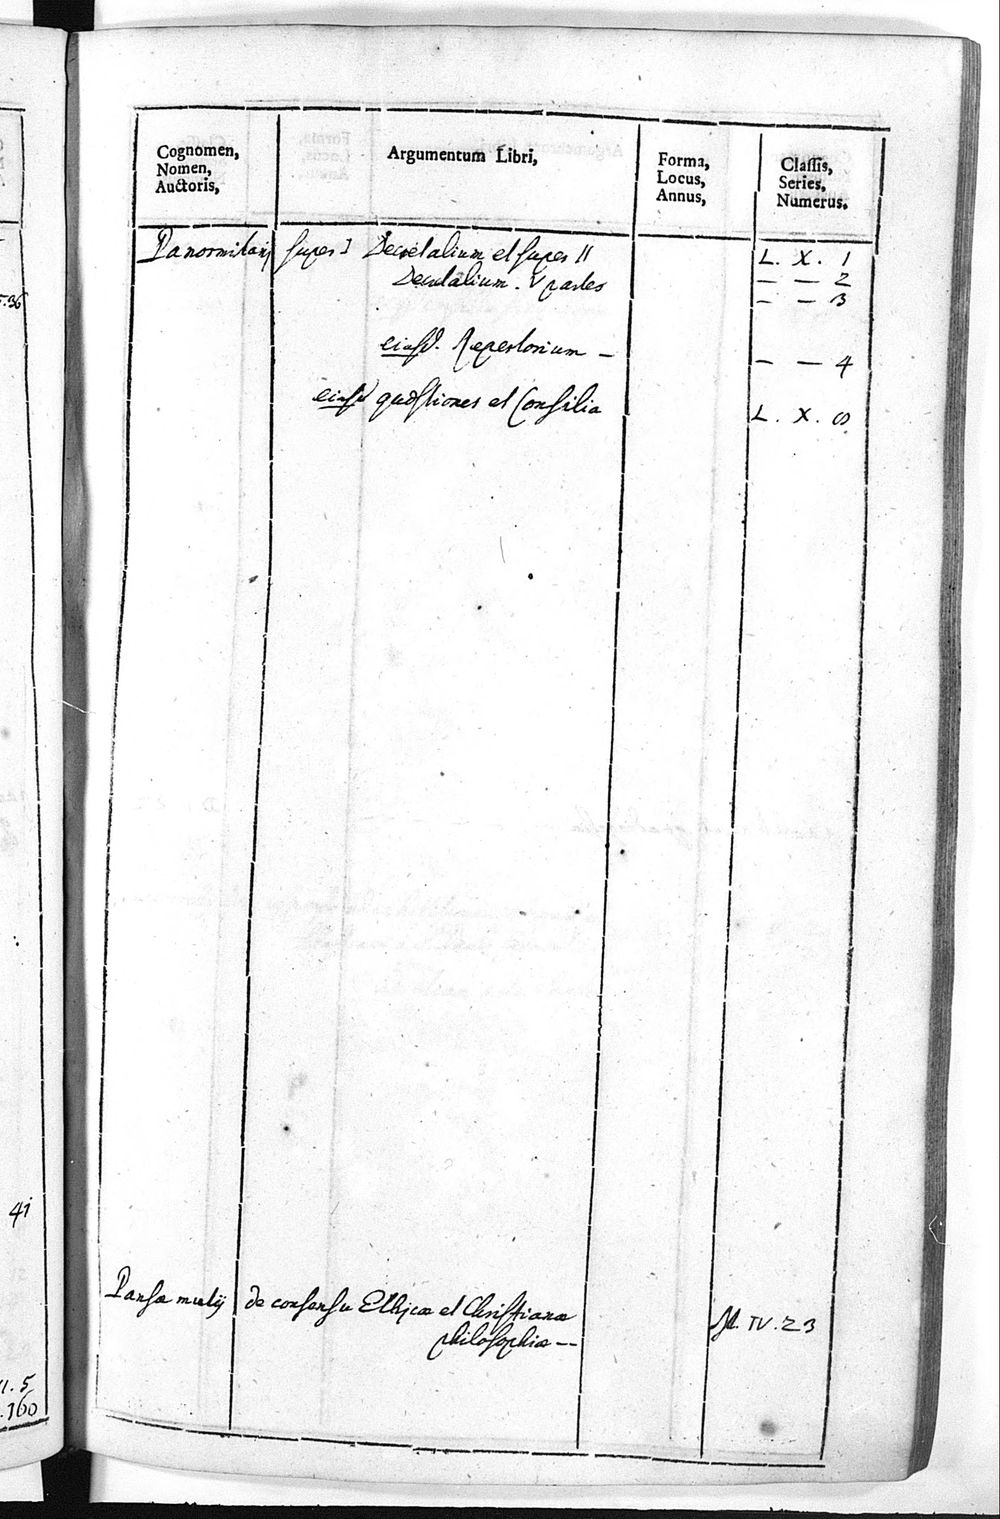 Cognomen,
Nomen,
Auctoris,
Argumentum Libri,
Forma,
Locus,
Annus,
Classis,
Series,
Numerus.
Panormitanj super I Decretalium et super II L. X. 1
Decretalium. V partes — — 2
— — 3
eiusd. Repertorium — — — 4
eiusd quæstiones et Consilia L. X. 5.
Pansæ mutij de consensu Ethicæ et Christianæ
philosophiæ — IV. 23
41
. 5
.160